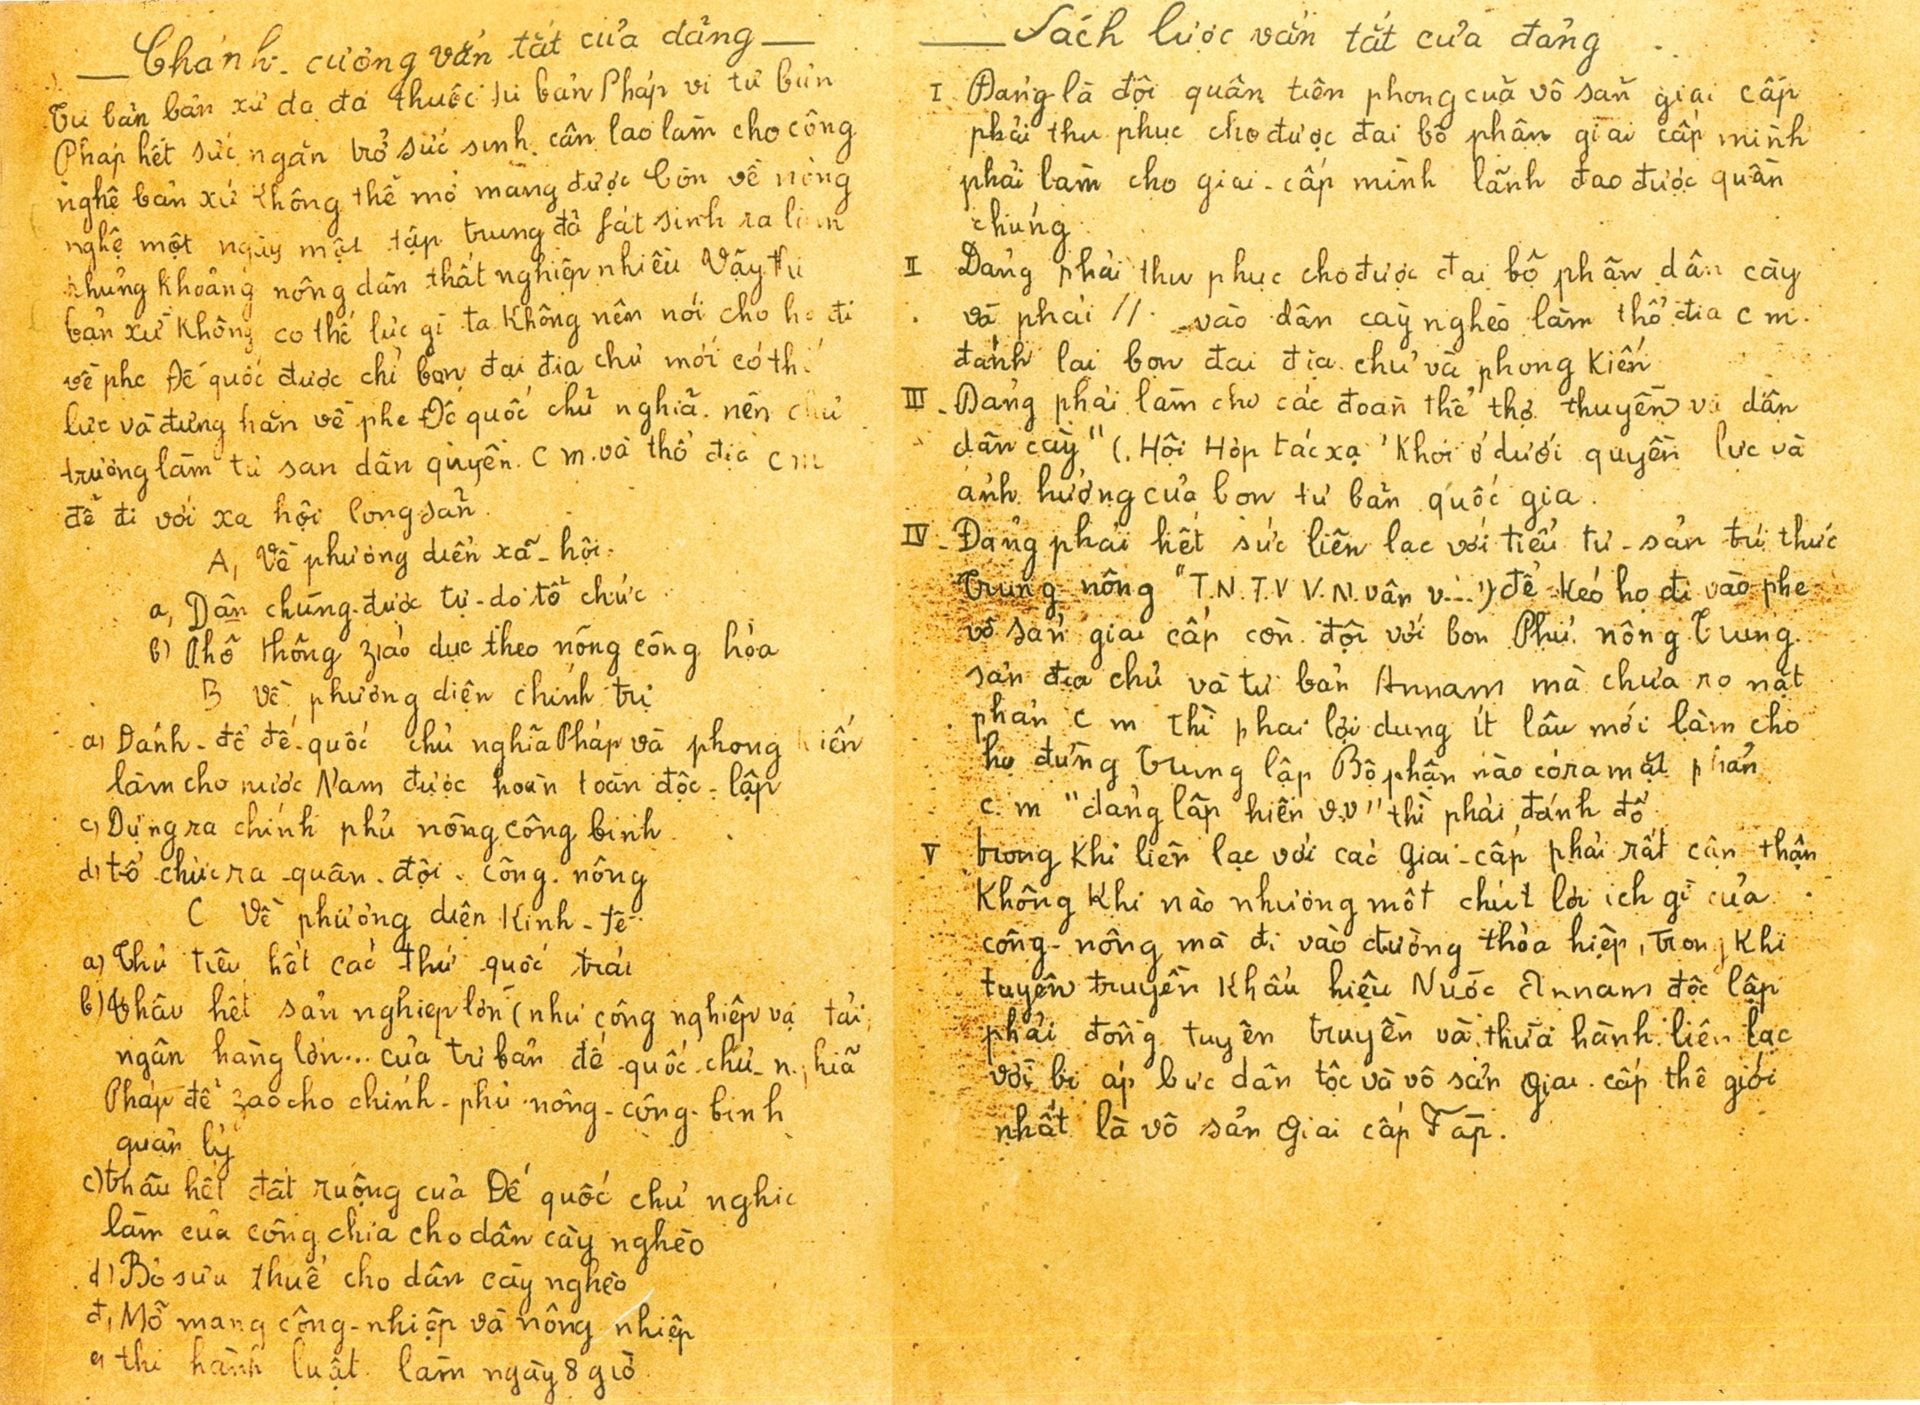 Chánh cương vắn tắt của đảng
Tư bản bản xứ đa đả thuộc tư bản Pháp vi tư bản
Pháp hết sức ngăn trở sức sinh sản lao làm cho công
nghệ bản xứ không thể mở mang được Còn về nông
nghệ một ngày một tập trung đã fát sinh ra
khủng khoảng nông dân thất nghiệp nhiều Vậy tư
bản xứ không có thế lực gì ta không nên nói cho họ đi
về phe Đế quốc được chỉ bọn đại địa chủ mới có thế
lực và đứng hẳn về phe Đế quốc chủ nghĩa nên chủ
trương làm tư sản dân quyền C m. và thổ địa C m
để đi với xa hội cộng sản
A, Về phương diện xã-hội.
a, Dân chúng được tự-do tổ chức
b) Phổ thông záo dục theo nông công hóa
B Về phương diện chính trị
a, Đánh-đổ đế-quốc chủ nghĩa Pháp và phong kiến
làm cho nước Nam được hoàn toàn độc-lập
c, Dựng ra chính phủ nông công binh
d, tổ chức ra quân-đội-công-nông
C Về phương diện Kinh-tế
a, Thủ tiêu hết các thứ quốc trái
b) thâu hết sản nghiệp lớn (như công nghiệp vận tải
ngân hàng lớn... của tư bản đế-quốc-chủ-nghĩa
Pháp để zao cho chính-phủ nông-công-binh
quản lý
c) thâu hết đất ruộng của Đế quốc chủ nghĩa
làm của công chia cho dân cày nghèo
d) Bỏ sưu thuế cho dân cày nghèo
đ, Mở mang công-nhiệp và nông nhiệp
e, thi hành luật làm ngày 8 giờ
Sách lược vắn tắt của đảng
I Đảng là đội quân tiên phong của vô sản giai cấp
phải thu phục cho được đại bộ phận giai cấp mình
phải làm cho giai-cấp mình lãnh đạo được quần
chúng
II Đảng phải thu phục cho được đại bộ phận dân cày
và phải // vào dân cày nghèo làm thổ địa c m.
đánh lại bọn đại địa chủ và phong kiến
III - Đảng phải làm cho các đoàn thể thợ thuyền và dân
dân cày" (, Hội Hợp tác xạ ' Khỏi ở dưới quyền lực và
ảnh hưởng của bọn tư bản quốc gia.
IV - Đảng phải hết sức liên lạc với tiểu tư-sản trí thức
trung nông "T.N. T.V V.N. vân v...") để kéo họ đi vào phe
vô sản giai cấp còn đội với bọn Phú nông Trung.
sản địa chủ và tư bản Annam mà chưa rõ nặt
phản c m thì phai lợi dụng ít lâu mới làm cho
họ đứng trung lập Bộ phận nào có ra mặt phản
c. m "đảng lập hiến v.v" thì phải đánh đổ
V trong khi liên lạc với các giai-cấp phải rất cận thận
Không khi nào nhường một chút lợi ích gì của
công-nông mà đi vào đường thỏa hiệp, trong khi
tuyên truyền khẩu hiệu Nước Annam độc lập
phải đồng tuyên truyền và thừa hành liên lạc
với bị áp bức dân tộc và vô sản giai-cấp thế giới
nhất là vô sản giai cấp Fáp.